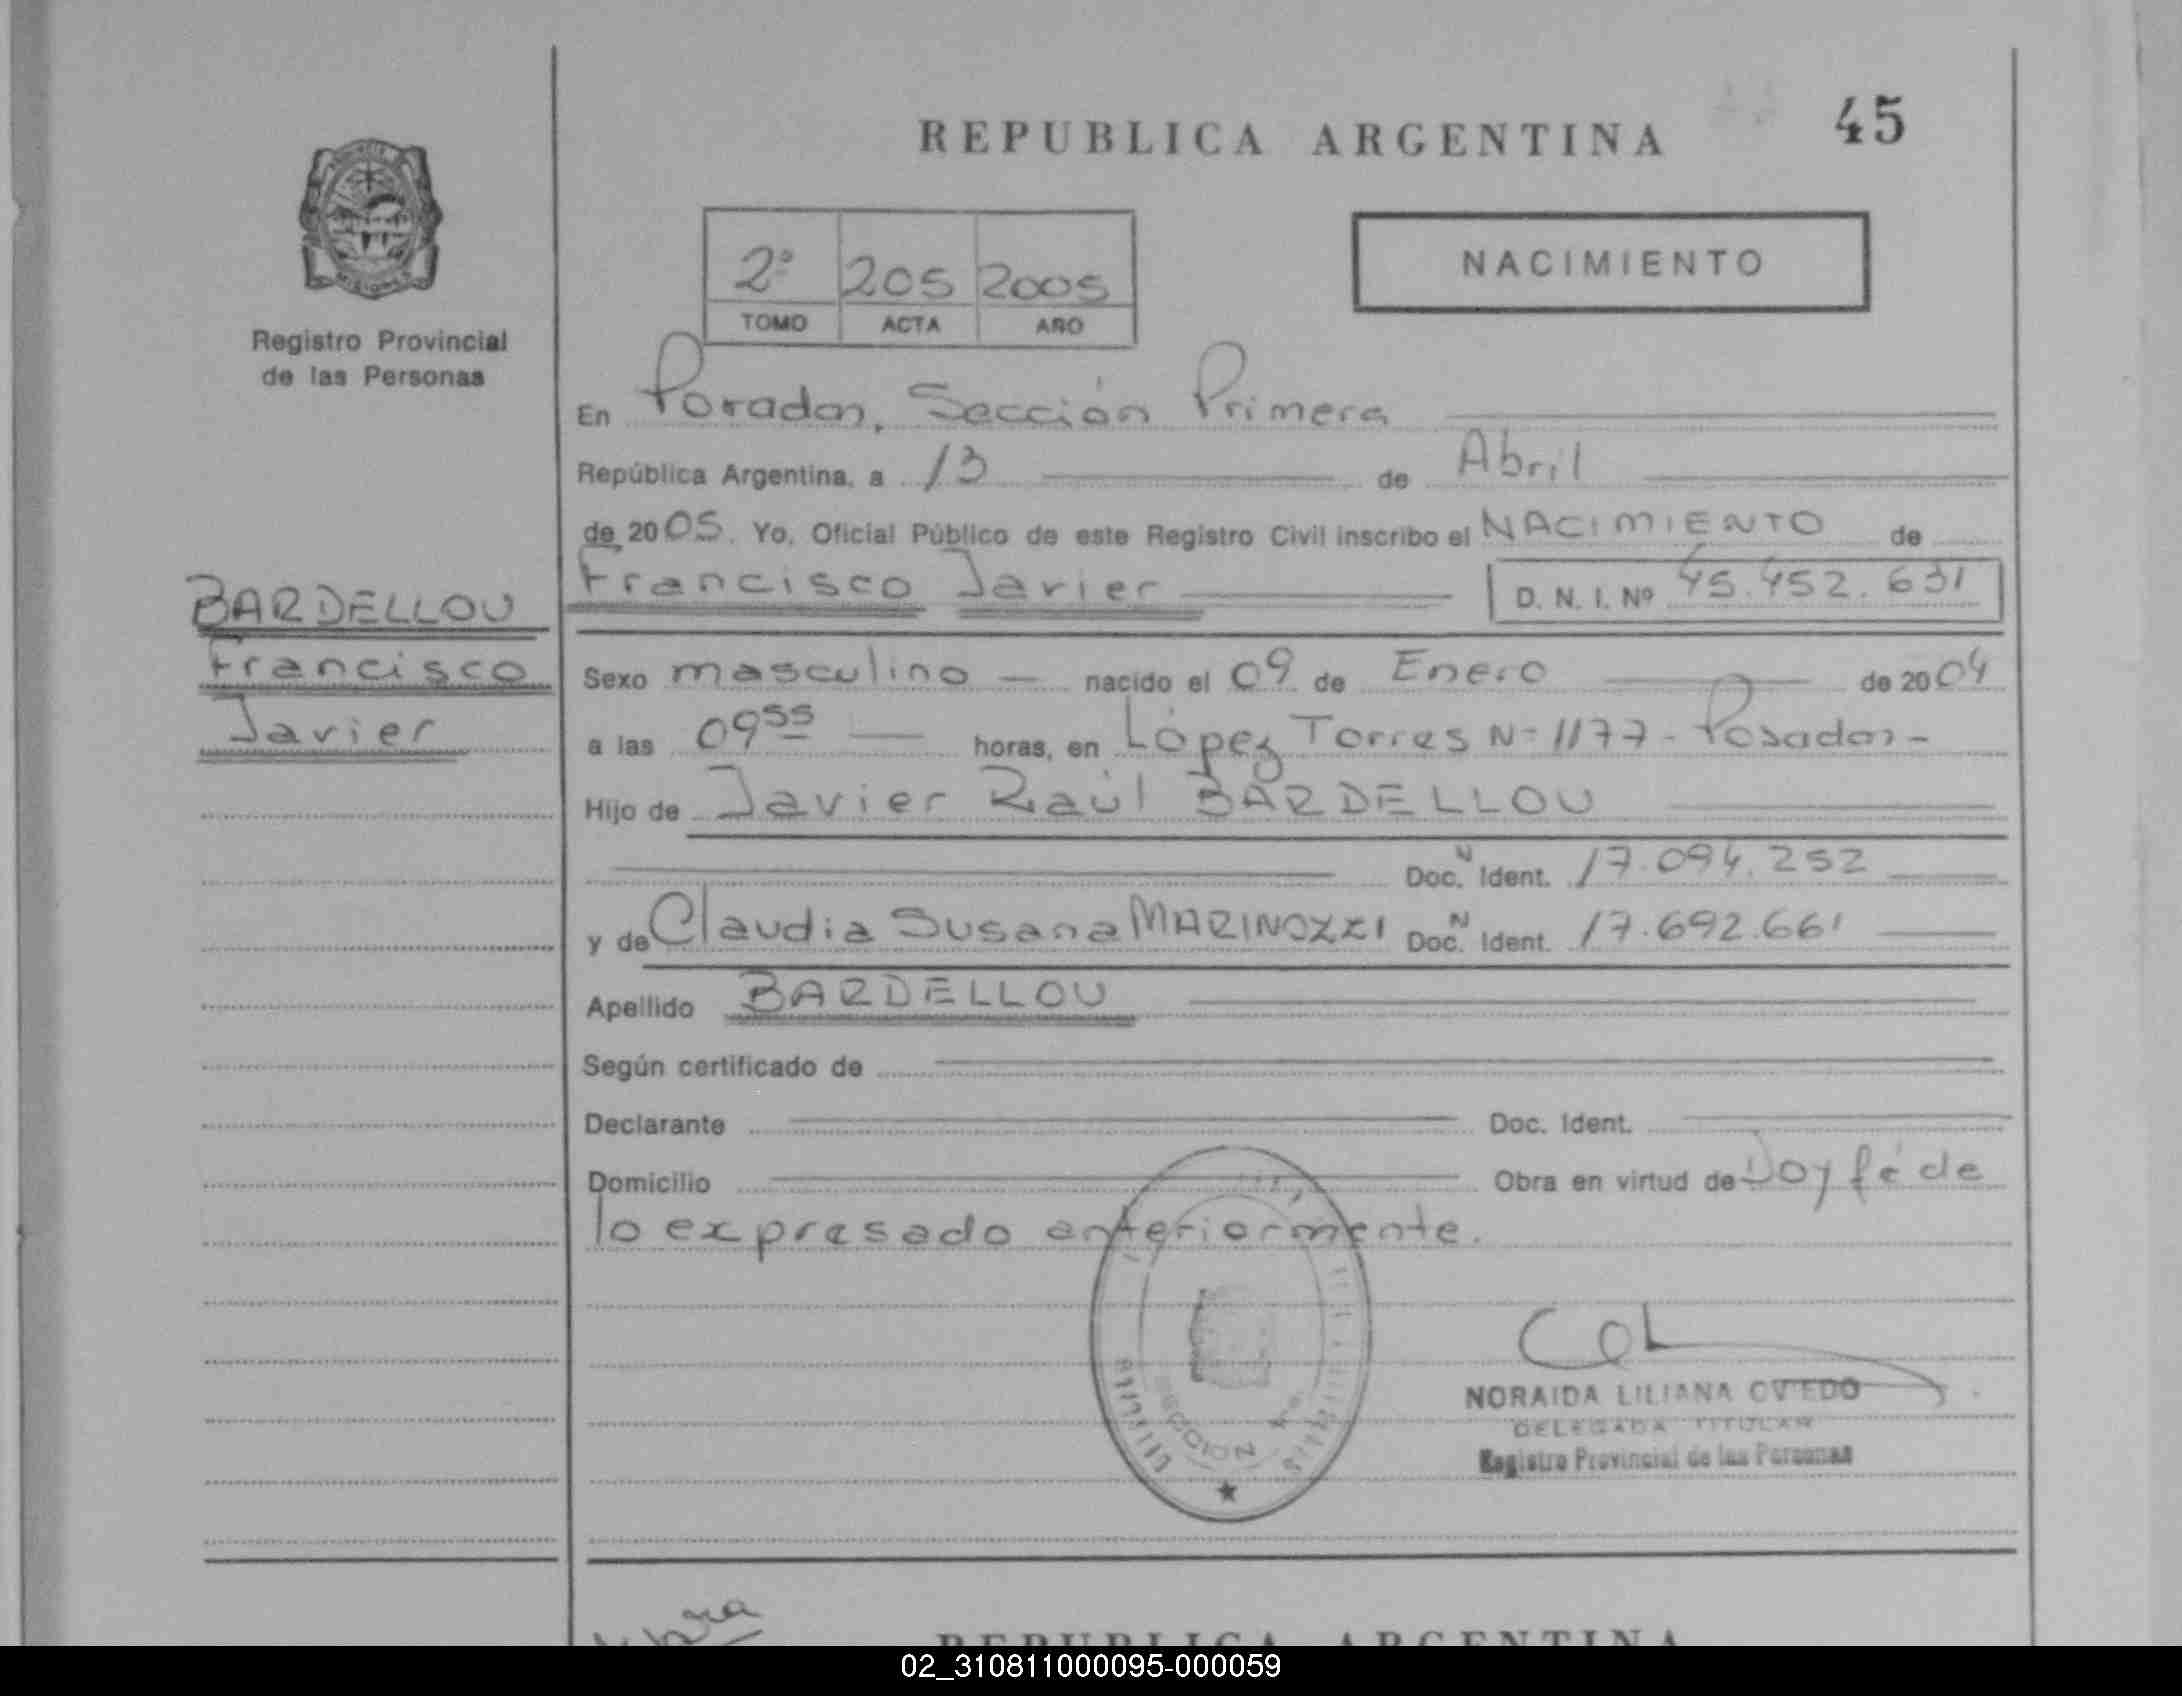 REPUBLICA ARGENTINA
45
2º 205 2005
TOMO ACTA AÑO
NACIMIENTO
Registro Provincial
de las Personas
En Posadas, Sección Primera
República Argentina, a 13 de Abril
de 2005. Yo, Oficial Público de este Registro Civil inscribo el NACIMIENTO de
Francisco Javier D. N. I. Nº 45.452.631
BARDELLOU
Francisco
Javier
Sexo masculino nacido el 09 de Enero de 2004
a las 09 55 horas, en López Torres Nº 1177 - Posadas -
Hijo de Javier Raúl BARDELLOU
Doc. N Ident. 17.094.252
y de Claudia Susana MARINOZZI Doc. N Ident. 17.692.661
Apellido BARDELLOU
Según certificado de
Declarante Doc. Ident.
Domicilio Obra en virtud de Doy fé de
lo expresado anteriormente.
SECCION 1ra.
NORAIDA LILIANA OVIEDO
DELEGADA TITULAR
Registro Provincial de las Personas
REPUBLICA ARGENTINA
02_310811000095-000059